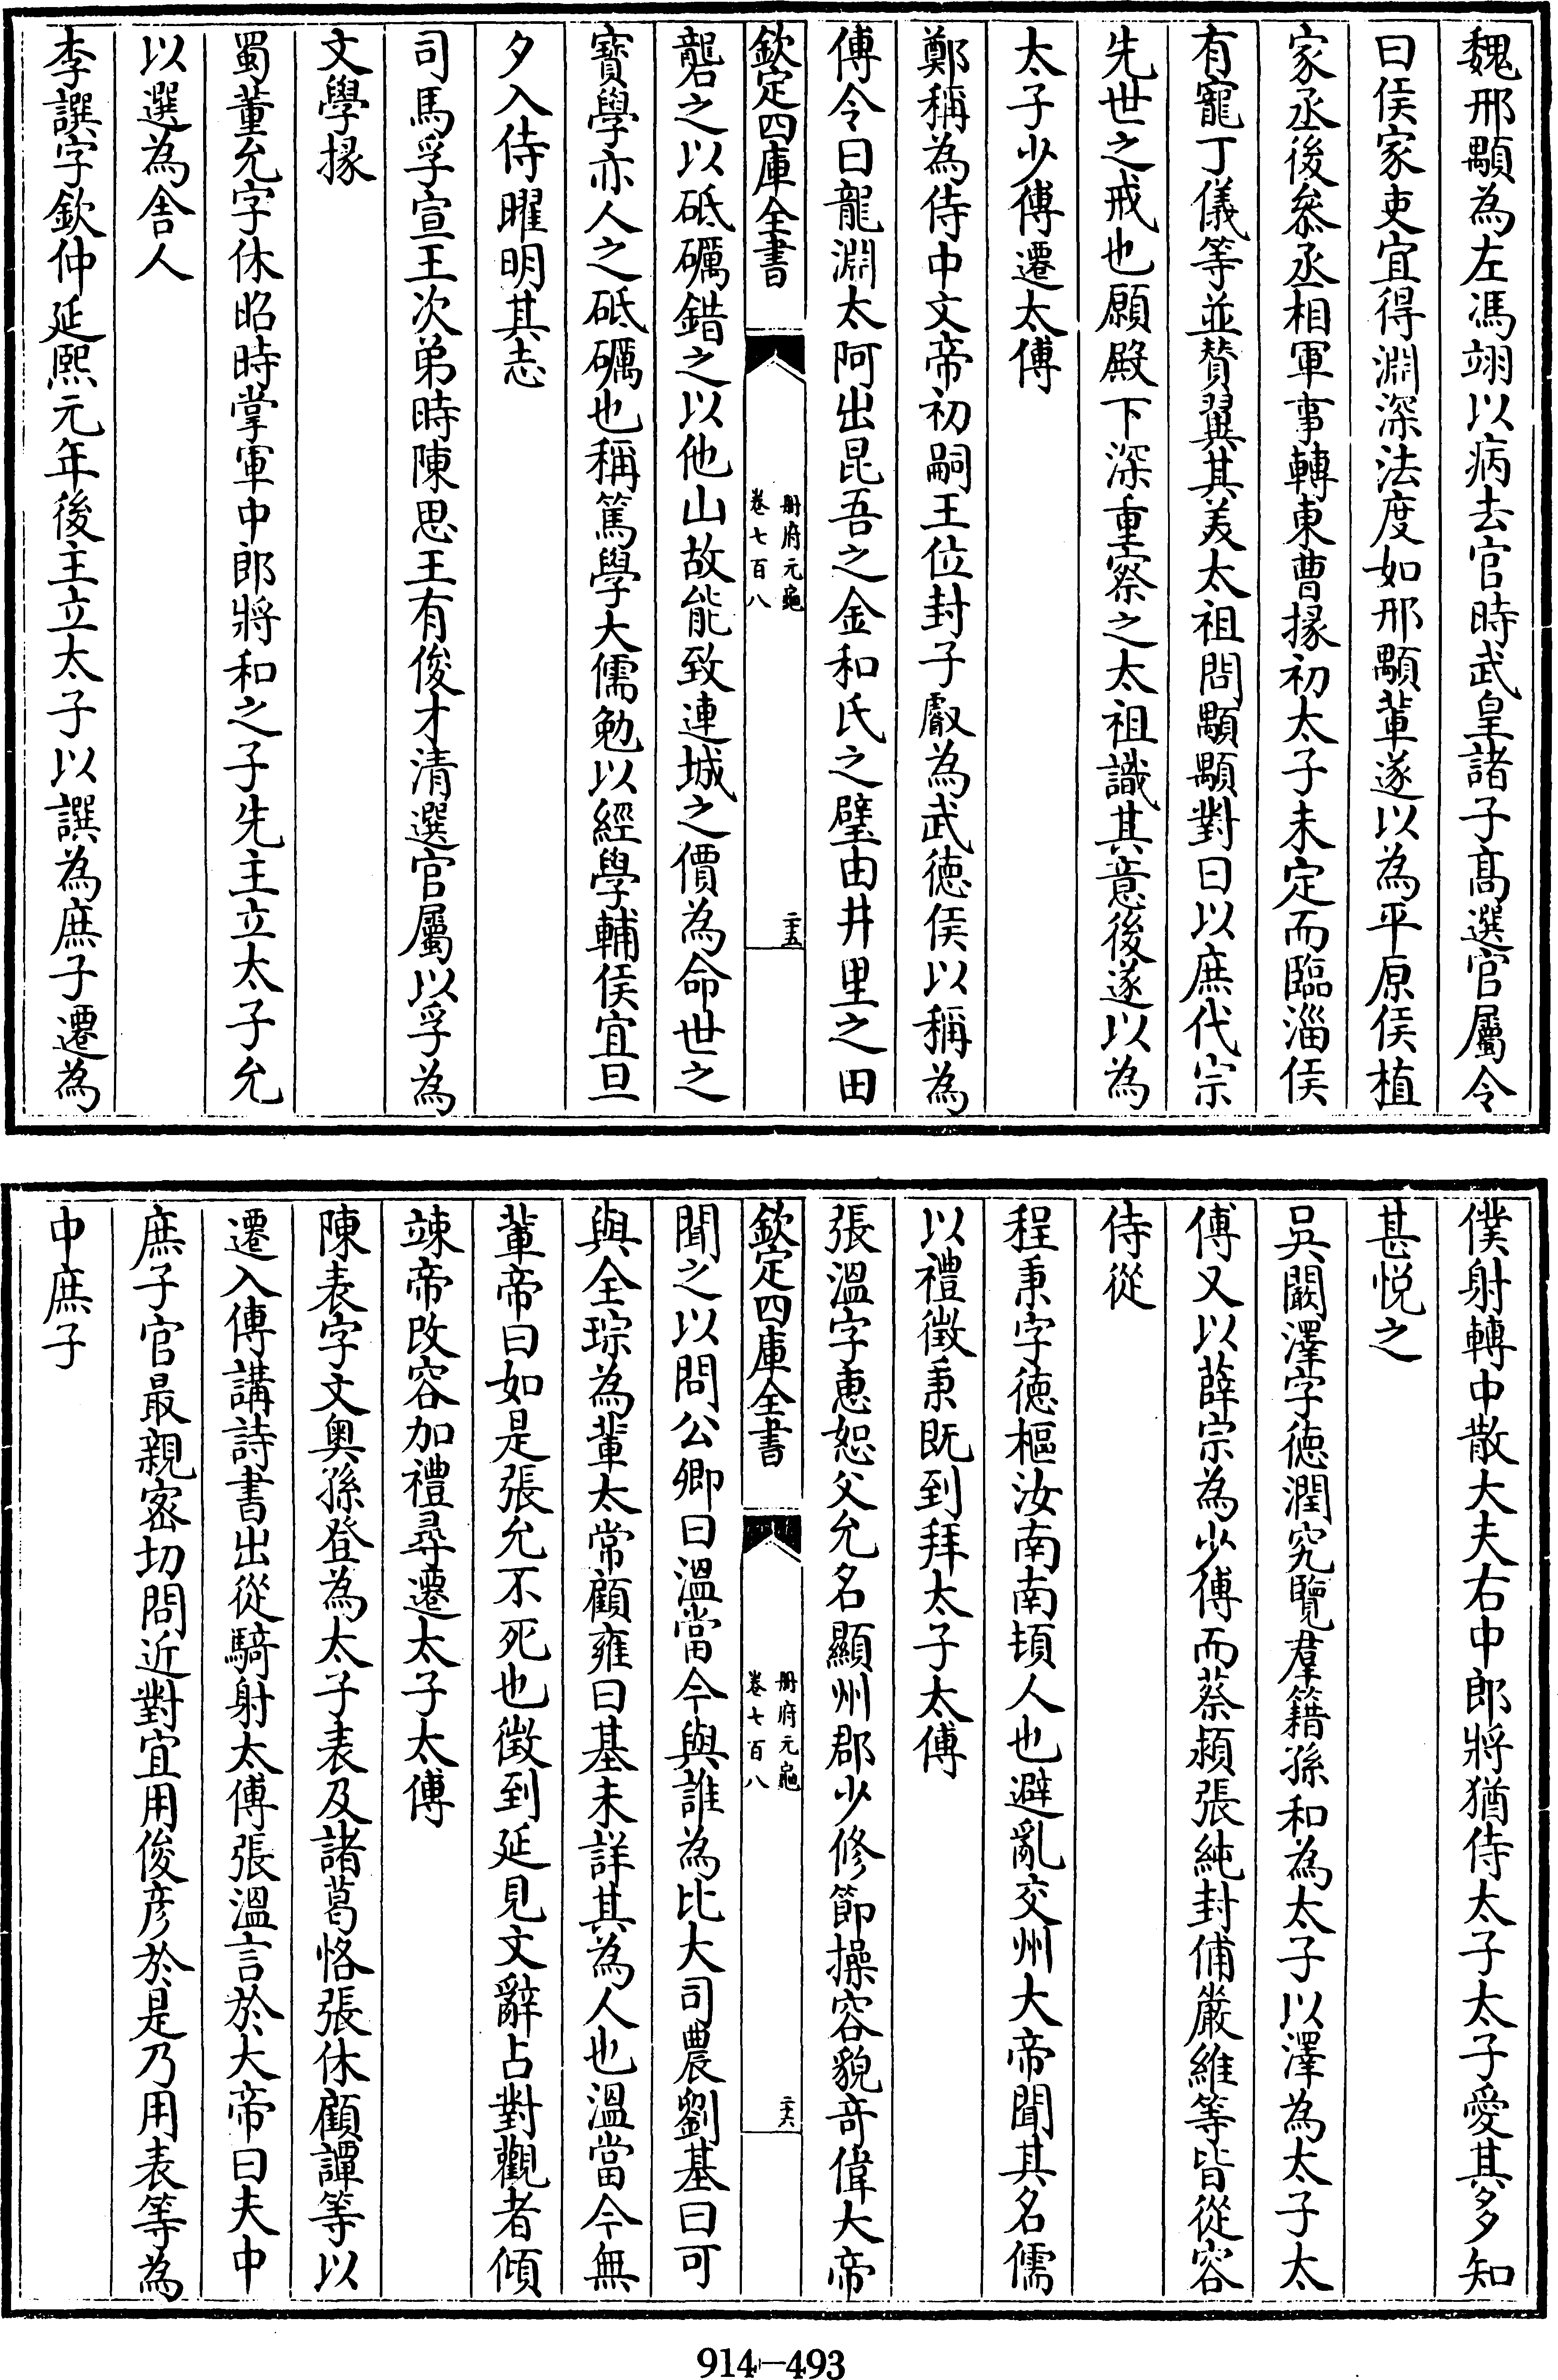 魏邢顒為左馮翊以病去官時武皇諸子髙選官屬令
曰侯家吏宜得淵深法度如邢顒輩遂以為平原侯植
家丞後叅丞相軍事轉東曹掾初太子未定而臨淄侯
有寵丁儀等並賛翼其美太祖問顒顒對曰以庶代宗
先世之戒也願殿下深重察之太祖識其意後遂以為
太子少傅遷太傅
鄭稱為侍中文帝初嗣王位封子叡為武徳侯以稱為
傅令曰龍淵太阿出昆吾之金和氏之璧由井里之田
欽定四庫全書
冊府元龜
卷七百八
二十五
礱之以砥礪錯之以他山故能致連城之價為命世之
寳學亦人之砥礪也稱篤學大儒勉以經學輔侯宜旦
夕入侍曜明其志
司馬孚宣王次弟時陳思王有俊才清選官屬以孚為
文學掾
蜀董允字休昭時掌軍中郎將和之子先主立太子允
以選為舎人
李譔字欽仲延熙元年後主立太子以譔為庶子遷為
僕射轉中散大夫右中郎將猶侍太子太子愛其多知
甚悦之
吳闞澤字徳潤究覽羣籍孫和為太子以澤為太子太
傅又以薛宗為少傅而蔡頴張純封俌嚴維等皆從容
侍從
程秉字徳樞汝南南頓人也避亂交州大帝聞其名儒
以禮徵秉既到拜太子太傅
張溫字恵恕父允名顯州郡少修節操容貌竒偉大帝
欽定四庫全書
冊府元龜
卷七百八
二十六
聞之以問公卿曰溫當今與誰為比大司農劉基曰可
與全琮為輩太常顧雍曰基未詳其為人也溫當今無
輩帝曰如是張允不死也徴到延見文辭占對觀者傾
竦帝改容加禮尋遷太子太傅
陳表字文奥孫登為太子表及諸葛恪張休顧譚等以
遷入傅講詩書出從騎射太傅張溫言於大帝曰夫中
庶子官最親宻切問近對宜用俊彦於是乃用表等為
中庶子
914-493